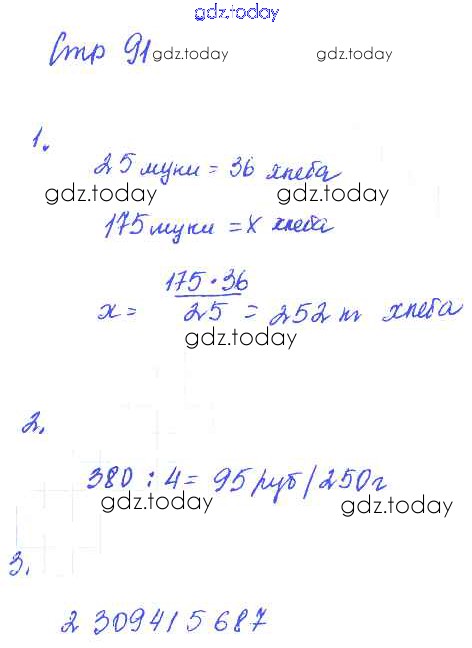 gdz.today
Стр 91
gdz.today gdz.today
1.
25 муки = 36 хлеба
gdz.today gdz.today
175 муки = x хлеба
x = 175 · 36 / 25 = 252 кг хлеба
gdz.today
2.
380 : 4 = 95 руб / 250 г
gdz.today gdz.today
3.
2 309415 687